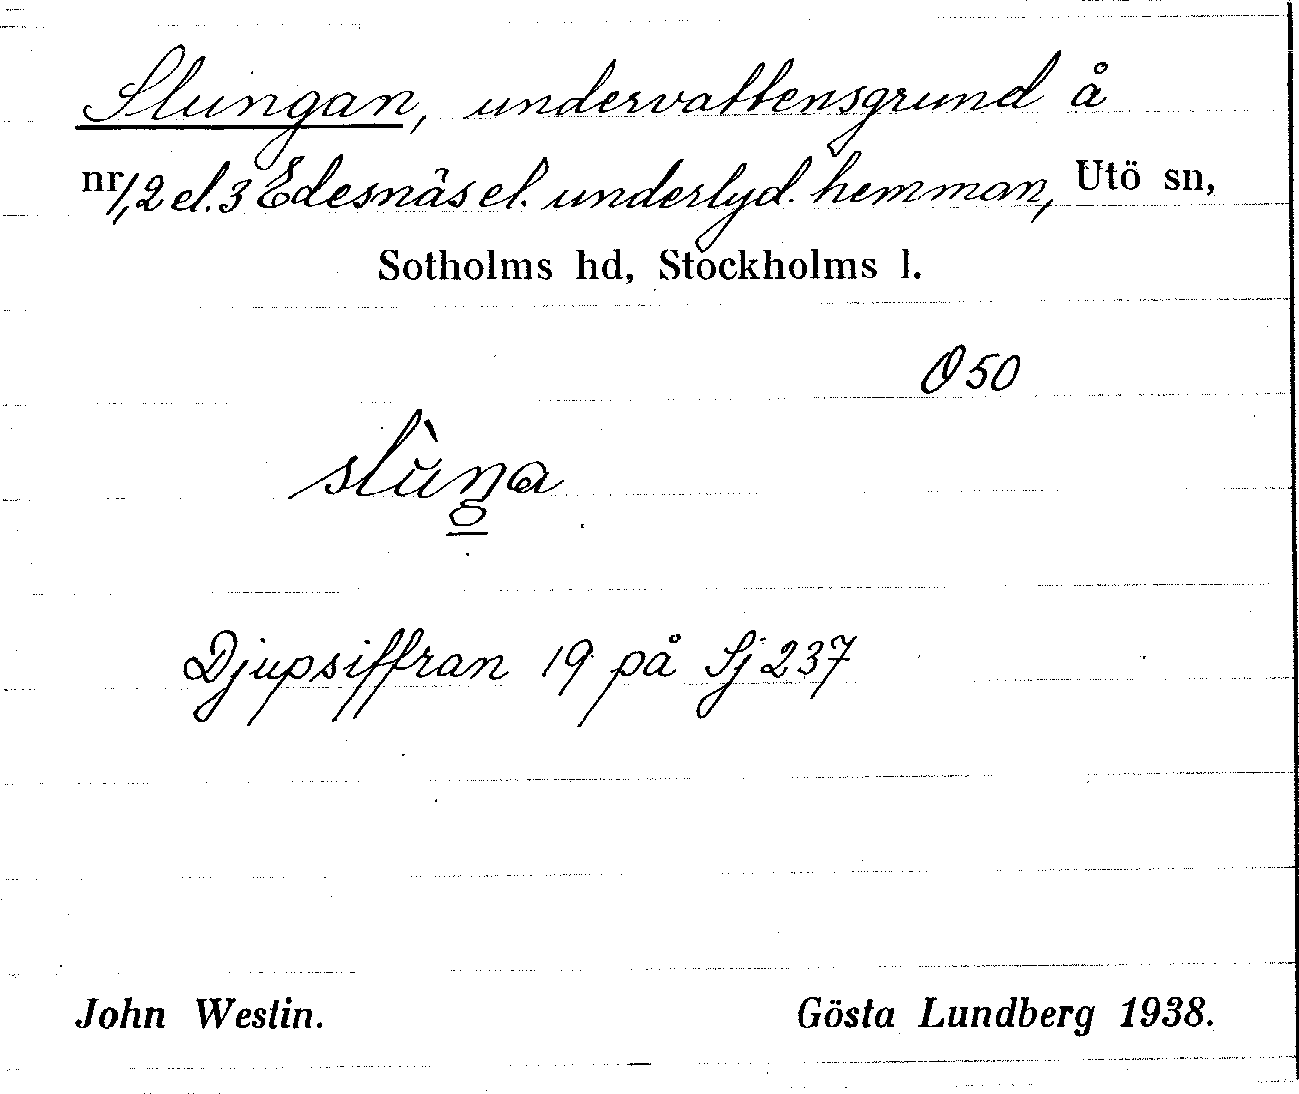 Slungan, undervattensgrund å
nr 1, 2 el. 3 Edesnäs el. underlyd. hemman, Utö sn,
Sotholms hd, Stockholms l.
Ö 50
Djupsiffran 19 på Sj 237
John Westin. Gösta Lundberg 1938.